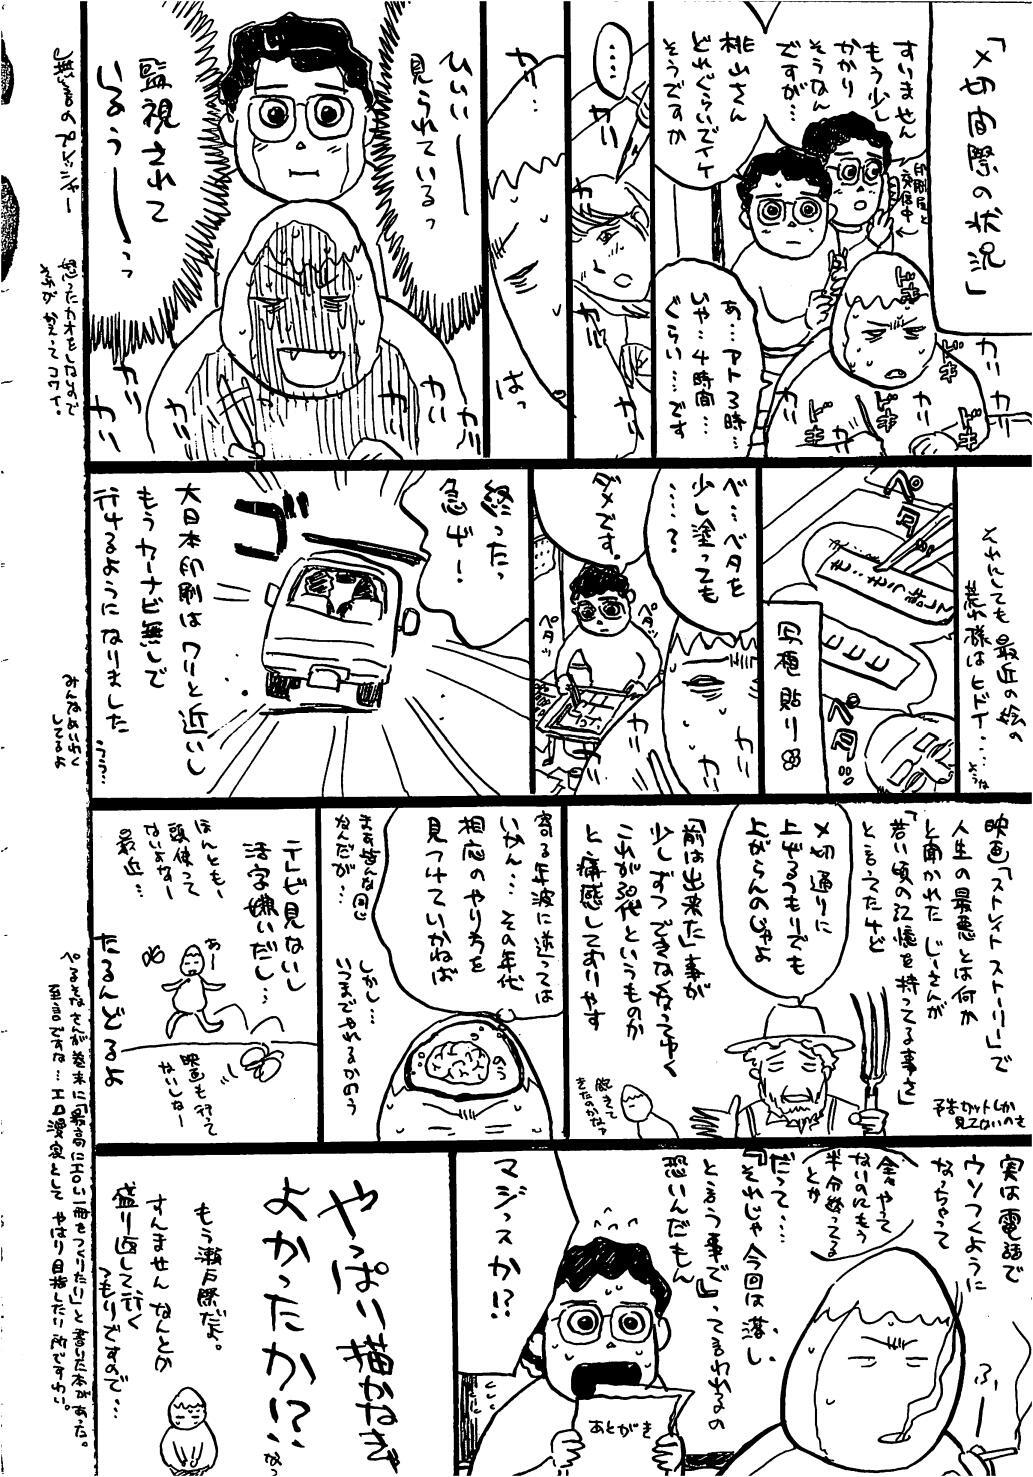 「〆切間際の状況」
すいません
もう少し
かかり
そうなん
ですが…
桃山さん
どれぐらいでイケ
そうですか
印刷屋と
交信中
あ…アト3時…
いや…4時間…
ぐらい……です
ドキ
ドキ
ドキ
ドキ
ドキ
カリ
カリ
カリ
……
カリ
カリ
カリ…
はっ
ひいいー
見られているっ
監視されて
いるうーーっっ
カリ
カリ
カリ
カリ
無言のプレッシャー
怒ったカオをしないので
それにしても最近の絵の
荒れ様はヒドイ…
ペタ
ペタ
写植貼り
ベ…ベタを
少し塗っても
……?
ダメです。
ペタッ
ペタッ
カリ
カリ
カリ
終ったっ
急げー!
ゴ
大日本印刷はワリと近いし
もうカーナビ無しで
行けるようになりました
うう…
みんなめいわく
してるよ
映画「ストレイトストーリー」で
人生の最悪とは何か
と聞かれたじいさんが
「若い頃の記憶を持ってる事さ」
と言ってたけど
予告カットしか
見てないのき
〆切通りに
上げるつもりでも
上がらんのじゃよ
「前は出来た」事が
少しずつできなくなってゆく
これが30代というものか
と痛感しておりやす
飽きて
きたのかなァ
寄る年波に逆っては
いかん…その年代
相応のやり方を
見つけていかねば
まァ皆んな同じ
なんだが…
しかし…
いつまでやれるかのう
テレビ見ないし
活字嫌いだし…
ほんともー
頭使って
ないよなー
最近…
あー
映画も行って
ないしなー
たるんどるよ
実は電話で
ウソつくように
なっちゃって
全々やって
ないのにもう
半分終ってる
とか
だって…
『それじゃ今回は落し
という事で』って言われるの
恐いんだもん
ふー
マジっスか!?
あとがき
やっぱり描かねぎゃ
よかったか!?
なっ
もう瀬戸際だよ。
すんませんなんとか
盛り返して行く
つもりですので…
ぺるそなさんが巻末に「最高にエロい一冊をつくりたい」と書いた本があった。
至言ですな…エロ漫家としてやはり目指したい所ですわい。